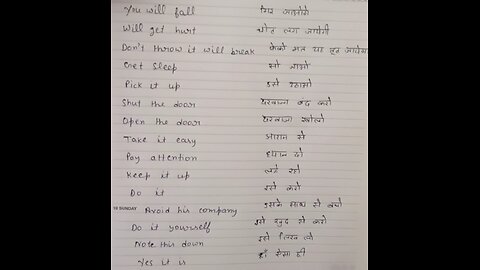 You will fall गिर जाओगे
Will get hurt चोट लग जायेगी
Don't throw it will break फेंको मत यह टूट जायेगा
Get Sleep सो जाओ
Pick it up इसे उठाओ
Shut the door दरवाजा बंद करो
Open the door दरवाजा खोलो
Take it easy आराम से
Pay attention ध्यान दो
Keep it up लगे रहो
Do it इसे करो
SUNDAY
Avoid his company उसके साथ से बचो
Do it yourself इसे खुद से करो
Note this down इसे लिख लो
Yes it is हाँ ऐसा ही